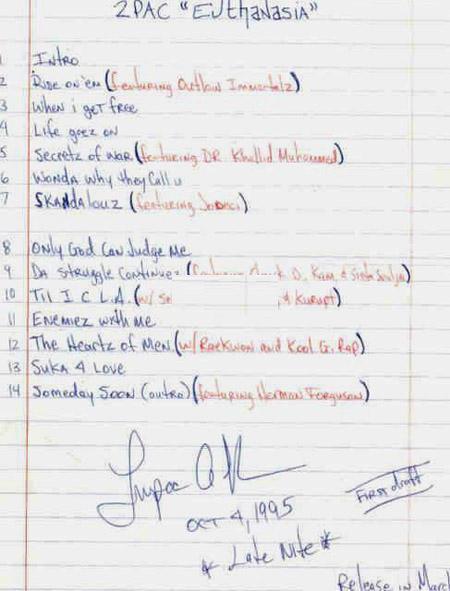 2PAC "Euthanasia"
1 Intro
2 Ride on 'em (featuring Outlaw Immortalz)
3 When i get free
4 Life goez on
5 Secretz of war (featuring DR Khallid Muhammed)
6 Wonda why they Call u
7 SKANdAlouZ (featuring)
8 Only God Can Judge Me
9 Da Struggle Continuez
10 Til I C L.A. (w/ & Kurupt)
11 Enemiez with me
12 The Heartz of Men (w/ RaeKwon and Kool G. Rap)
13 Suka 4 Love
14 Someday Soon (outro) (featuring Norman Ferguson)
Tupac
Oct 4, 1995
First draft
* Late Nite *
Release in March